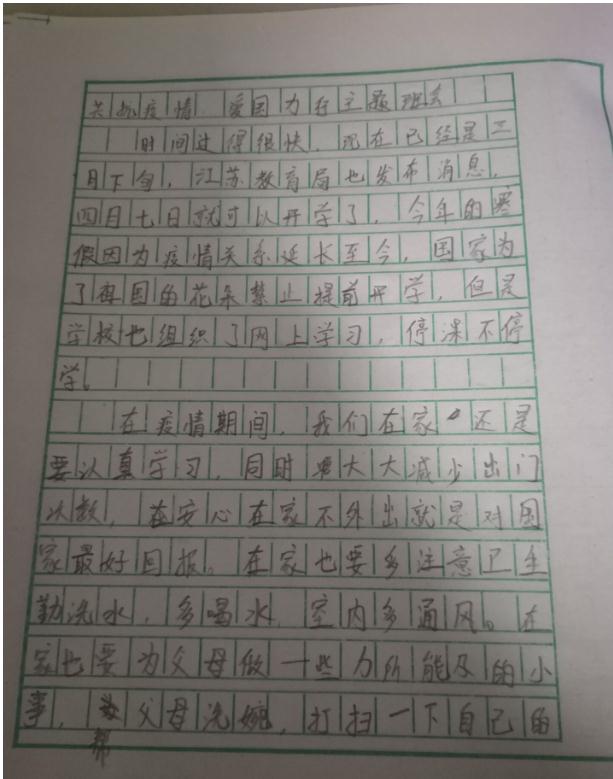 共抗疫情 爱国力行主题班会
时间过得很快，现在已经是三
月下旬，江苏教育局也发布消息，
四月七日就可以开学了，今年的寒
假因为疫情关系延长至今，国家为
了祖国的花朵禁止提前开学，但是
学校也组织了网上学习，停课不停
学。
在疫情期间，我们在家 还是
要认真学习，同时 大大减少出门
次数，在安心在家不外出就是对国
家最好回报。在家也要多注意卫生
勤洗水，多喝水，室内多通风。在
家也要为父母做一些力所能及的小
事，帮父母洗碗，打扫一下自己的